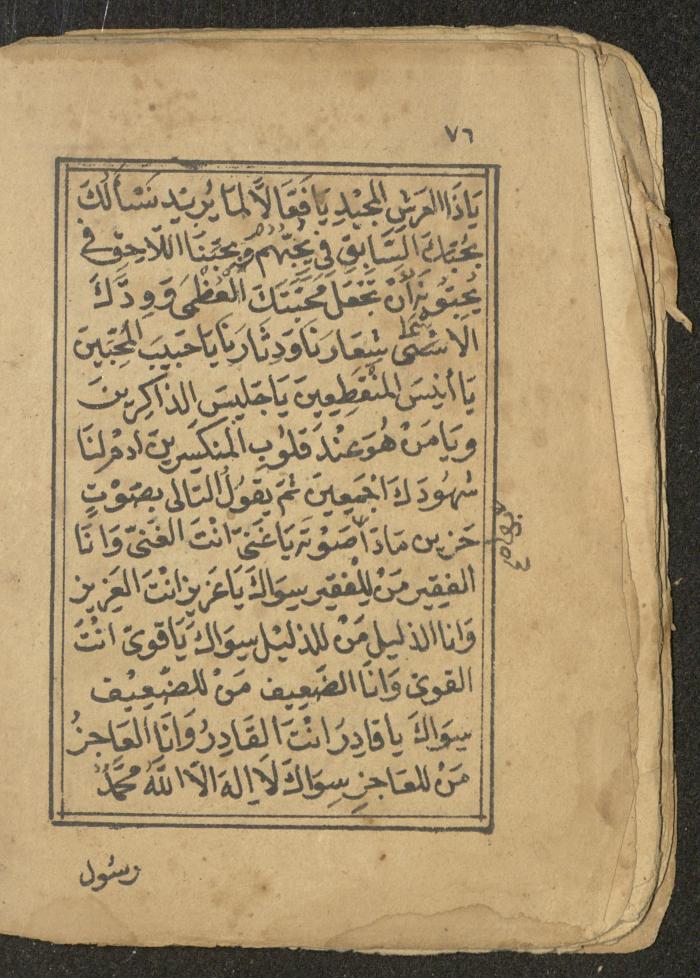 ٧٦
يَاذَا العَرشِ المجِيْدِ يَا فَعَّالًا لمَا يُرِيْد نَسْأَلُكَ
بحُبّكَ السَّابِقِ فِي يُحِبُّهُمْ وَبِحُبّنَا اللّاحِقْ فِي
يُحِبّونَه أَنْ تَجْعَلْ مَحَبَّتَكَ العُظْمَى وَوِدَّكَ
الاَسْمَى شِعَارنَا وَدِثَارنَا يَا حَبِيبَ المُحِبّينَ
يَا أَنِيسَ المُنْقَطِعِينَ يَا جَلِيسَ الذاكِرِينَ
وَيَا مَنْ هُوَ عِنْدَ قلُوبِ المنكَسِرِينَ ادِمْ لَنَا
شهُودَكَ اجْمَعِينَ ثمّ يَقُولُ التالى بصَوْتٍ
حَزين مَادّاً صَوْتَه يَا غَنىّ انْتَ الغَنىّ وَانَا
الفقِير مَنْ لِلْفقِير سِوَاكَ يَا عَزيز انْتَ العَزِيز
وَانا الذليل مَنْ للذليْل سِوَاكَ يَا قَوىّ انْتَ
القَوىّ وَانَا الضَّعِيف مَنْ للضّعِيْف
سِوَاكَ يا قادِرَ انْتَ القَادِرُ وَانَا العَاجزُ
مَنْ للعَاجزِ سِوَاكَ لَا اِلهَ الّا اللّهُ محمَّدٌ
رسُول